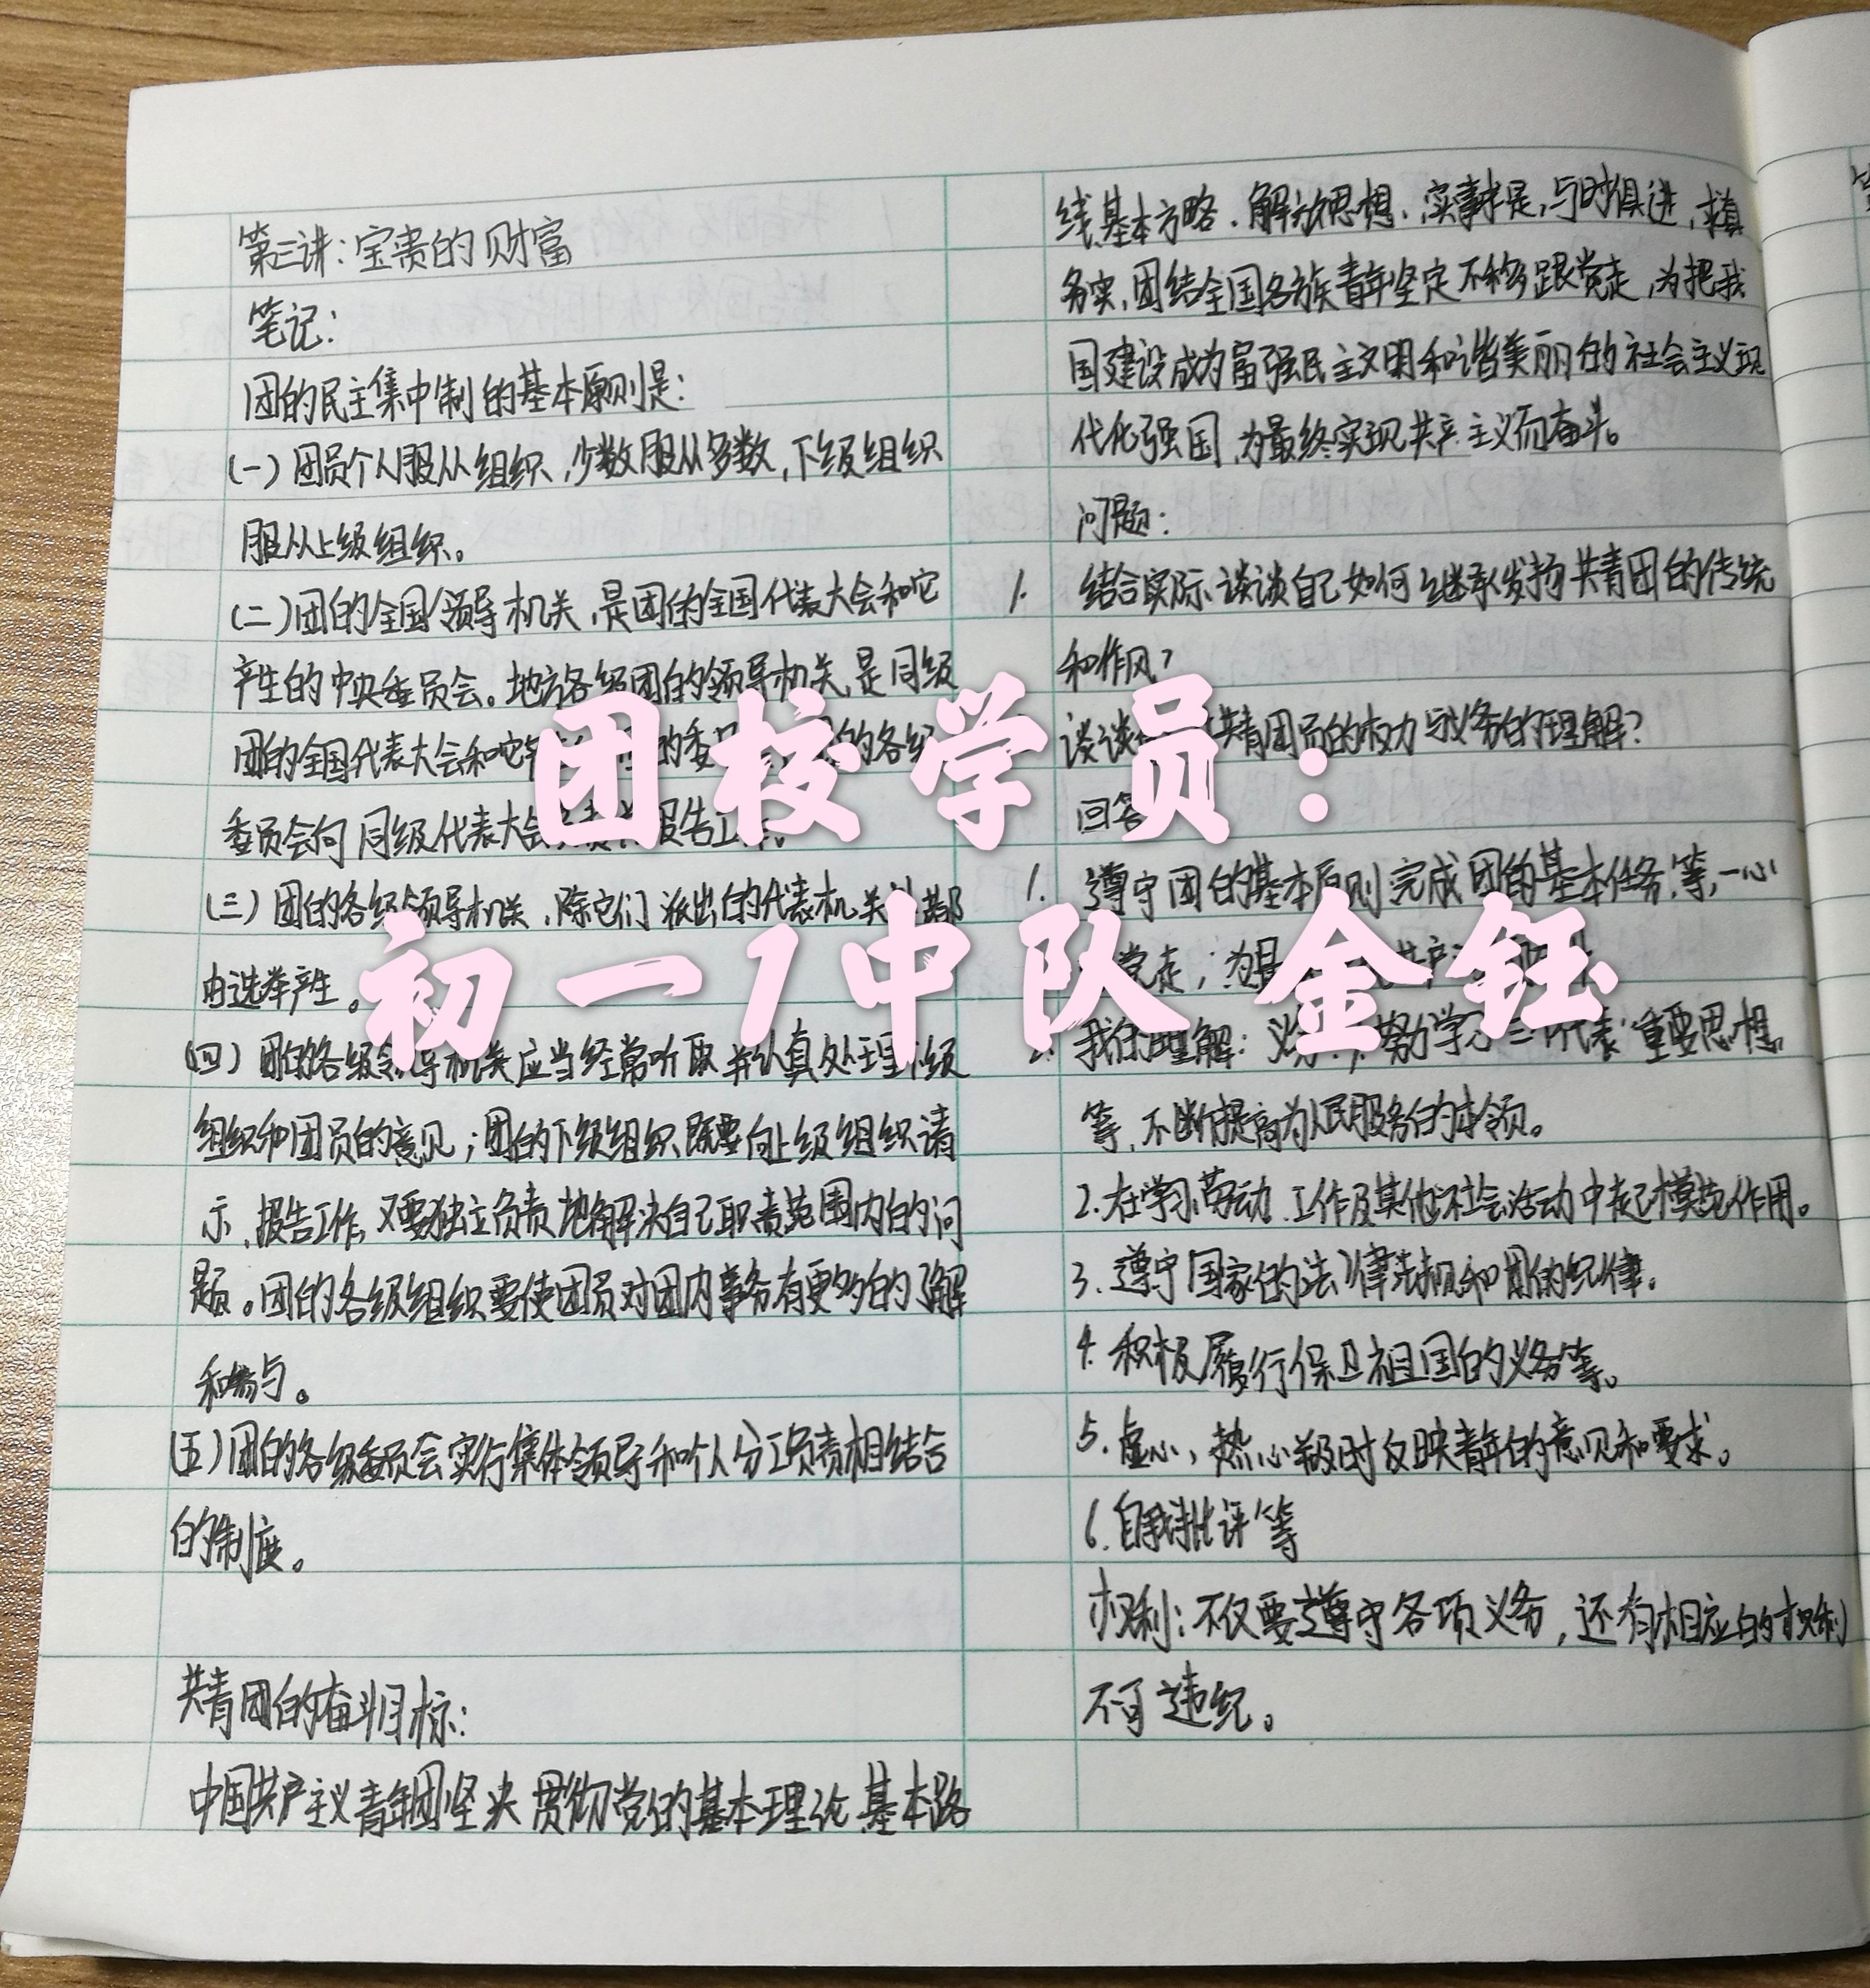 第三讲：宝贵的财富
笔记：
团的民主集中制的基本原则是：
（一）团员个人服从组织，少数服从多数，下级组织
服从上级组织。
（二）团的全国领导机关，是团的全国代表大会和它
产生的中央委员会。地方各级团的领导机关，是同级
团的全国代表大会和它 的委 的各级
委员会向同级代表大会 报告工
（三）团的各级领导机关，除它们派出的代表机关 都
由选举产生。
（四）团的各级领导机关应当经常听取并认真处理下级
组织和团员的意见；团的下级组织既要向上级组织请
示、报告工作，又要独立负责地解决自己职责范围内的问
题。团的各级组织要使团员对团内事务有更多的了解
和参与。
（五）团的各级委员会实行集体领导和个人分工负责相结合
的制度。
共青团的奋斗目标：
中国共产主义青年团坚决贯彻党的基本理论、基本路
线、基本方略，解放思想、实事求是，与时俱进，求真
务实，团结全国各族青年坚定不移跟党走，为把我
国建设成为富强民主文明和谐美丽的社会主义现
代化强国，为最终实现共产主义而奋斗。
问题：
1. 结合实际，谈谈自己如何继承发扬共青团的传统
和作风？
谈谈 共青团员的权力与义务的理解？
回答
1. 遵守团的基本原则完成团的基本任务，等，一心
党走，为最 共产
我的理解：义务：1、努力学习"三个代表"重要思想，
等，不断提高为人民服务的本领。
2.在学习、劳动、工作及其他社会活动中起模范作用。
3.遵守国家的法律法规和团的纪律。
4.积极履行保卫祖国的义务等。
5.虚心、热心，及时反映青年的意见和要求。
6.自我批评等
权利：不仅要遵守各项义务，还有相应的权利
不可违纪。
团校学员：
初一1中队 金钰